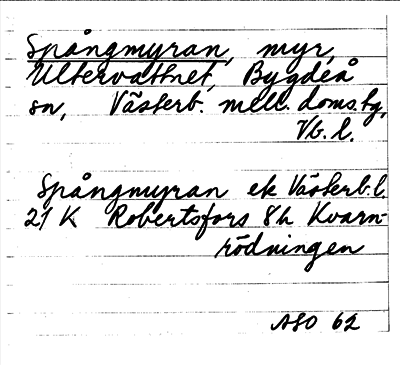 Spångmyran, myr,
Ultervattnet, Bygdeå
sn, Västerb. mell. doms.fg,
Vb. l.
Spångmyran ek Västerb. l.
21 K Robertsfors 8h Kvarn-
rödningen
ASO 62